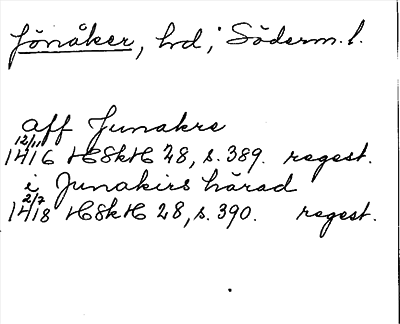 Jönåker, hd i Söderm. l.
aff Junakrs
12/11
1416 HSkH 28, s. 389. regest.
i Junakirs härad
2/7
1418 HSkH 28, s. 390. regest.